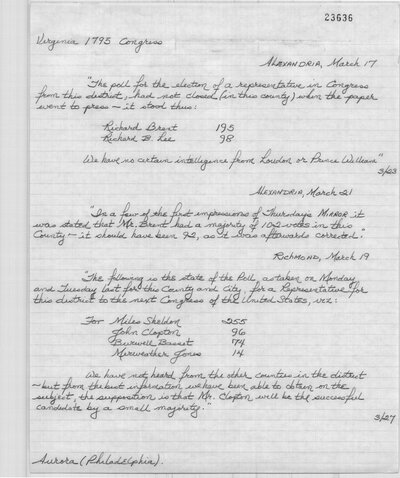 23636
Virginia 1795 Congress
Alexandria, March 17
"The poll for the election of a representative in Congress
from this district, had not closed (in this county) when the paper
went to press — it stood thus:
Richard Brent 195
Richard B. Lee 98
We have no certain intelligence from Loudon or Prince William"
3/23
Alexandria, March 21
"In a few of the first impressions of Thursday's Mirror it
was stated that Mr. Brent had a majority of 102 votes in this
County — it should have been 92, as it was afterwards corrected."
Richmond, March 19
"The following is the state of the Poll, as taken on Monday
and Tuesday last for this County and City, for a Representative for
this district to the next Congress of the United States, viz:
For Miles Sheldon 255
John Clopton 96
Burwell Basset 74
Meriweather Jones 14
We have not heard from the other counties in the district
— but from the best information we have been able to obtain on the
subject, the supposition is that Mr. Clopton will be the successful
candidate by a small majority."
3/27
Aurora (Philadelphia).